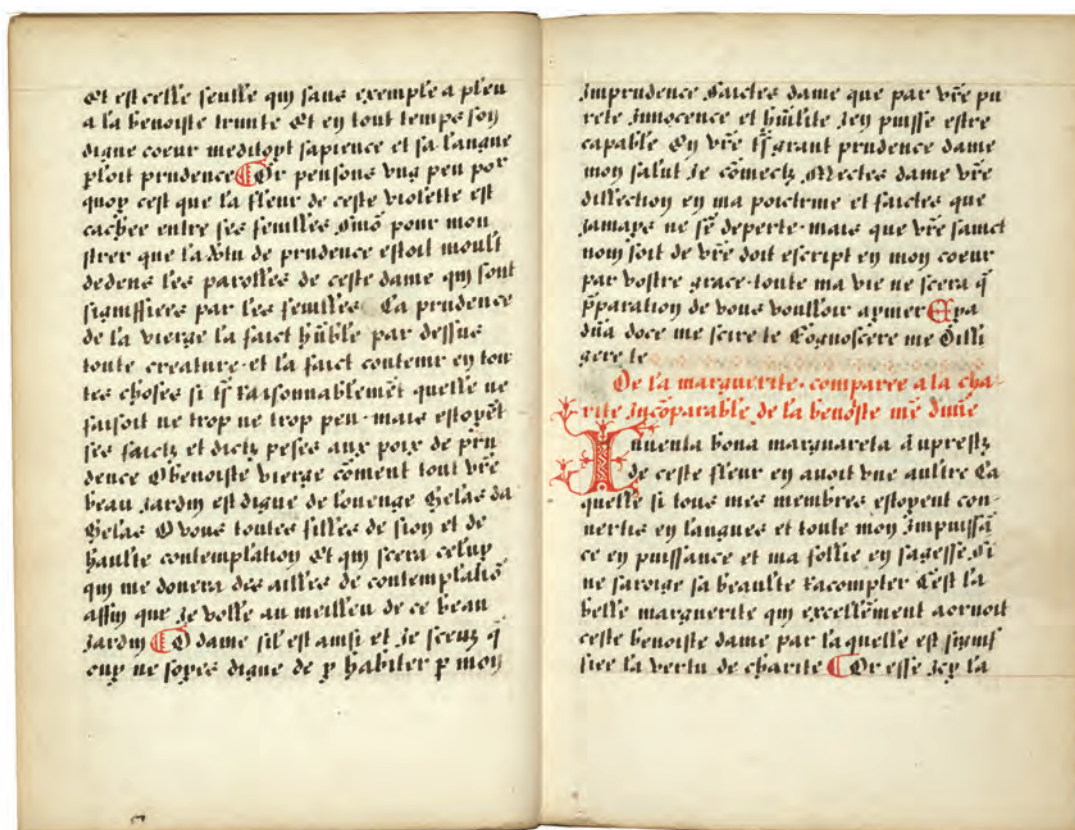 Et est celle seulle qui sans exemple a pleu
a la benoiste trinite Et en tout temps son
digne coeur meditoyt sapience et sa langue
ploit prudence Or pensons ung peu por
quoy cest que la fleur de ceste violette est
cachee entre ses feuilles Sinõ pour mon
strer que la vtu de prudence estoit moult
dedens les parolles de ceste dame qui sont
signiffiees par les feuilles La prudence
de la vierge la faict hũble par dessus
toute creature et la faict contenir en tou
tes choses si ts raisonnablemẽt quelle ne
faisoit ne trop ne trop peu mais estoyẽt
ses faictz et dictz peses aux poix de pru
dence O benoiste vierge cõment tout vr̃e
beau Jardin est digne de louenge Helas da
Helas O vous toutes filles de sion et de
haulte contemplation Et qui scera celuy
qui me donera des ailles de contemplatiõ
affin que Je volle au meilleu de ce beau
Jardin O dame sil est ainsi et Je sceuz q̃
ouy ne soyes digne de y habiter p moy
Imprudence Faictes dame que par vr̃e pu
rete Innocence et hũilite Jen puisse estre
capable En vr̃e ts̃ grant prudence dame
mon salut Je cõmectz Mectes dame vr̃e
dillection en ma poictrine et faictes que
Jamays ne sẽ deperte mais que vr̃e sainct
nom soit de vr̃e doit escript en mon coeur
par vostre grace toute ma vie ne scera q̃
p̃paration de vous voulloir aymer Eya
dñia doce me scire te Cognoscere me Dilli
gere te
De la marguerite comparee a la cha-
rite Incõparable de la benoiste me
Inuenta bona marguareta Auprestz
de ceste fleur en auoit vne aultre La
quelle si tous mes membres estoyent con-
uertis en langues et toute mon Impuissã
ce en puissance et ma follie en sagesse Si
ne saroige sa beaulte racompter Cest la
belle marguerite qui excellẽment aornoit
ceste benoiste dame par la quelle est signif
fiee la vertu de charite Or esse Jcy la